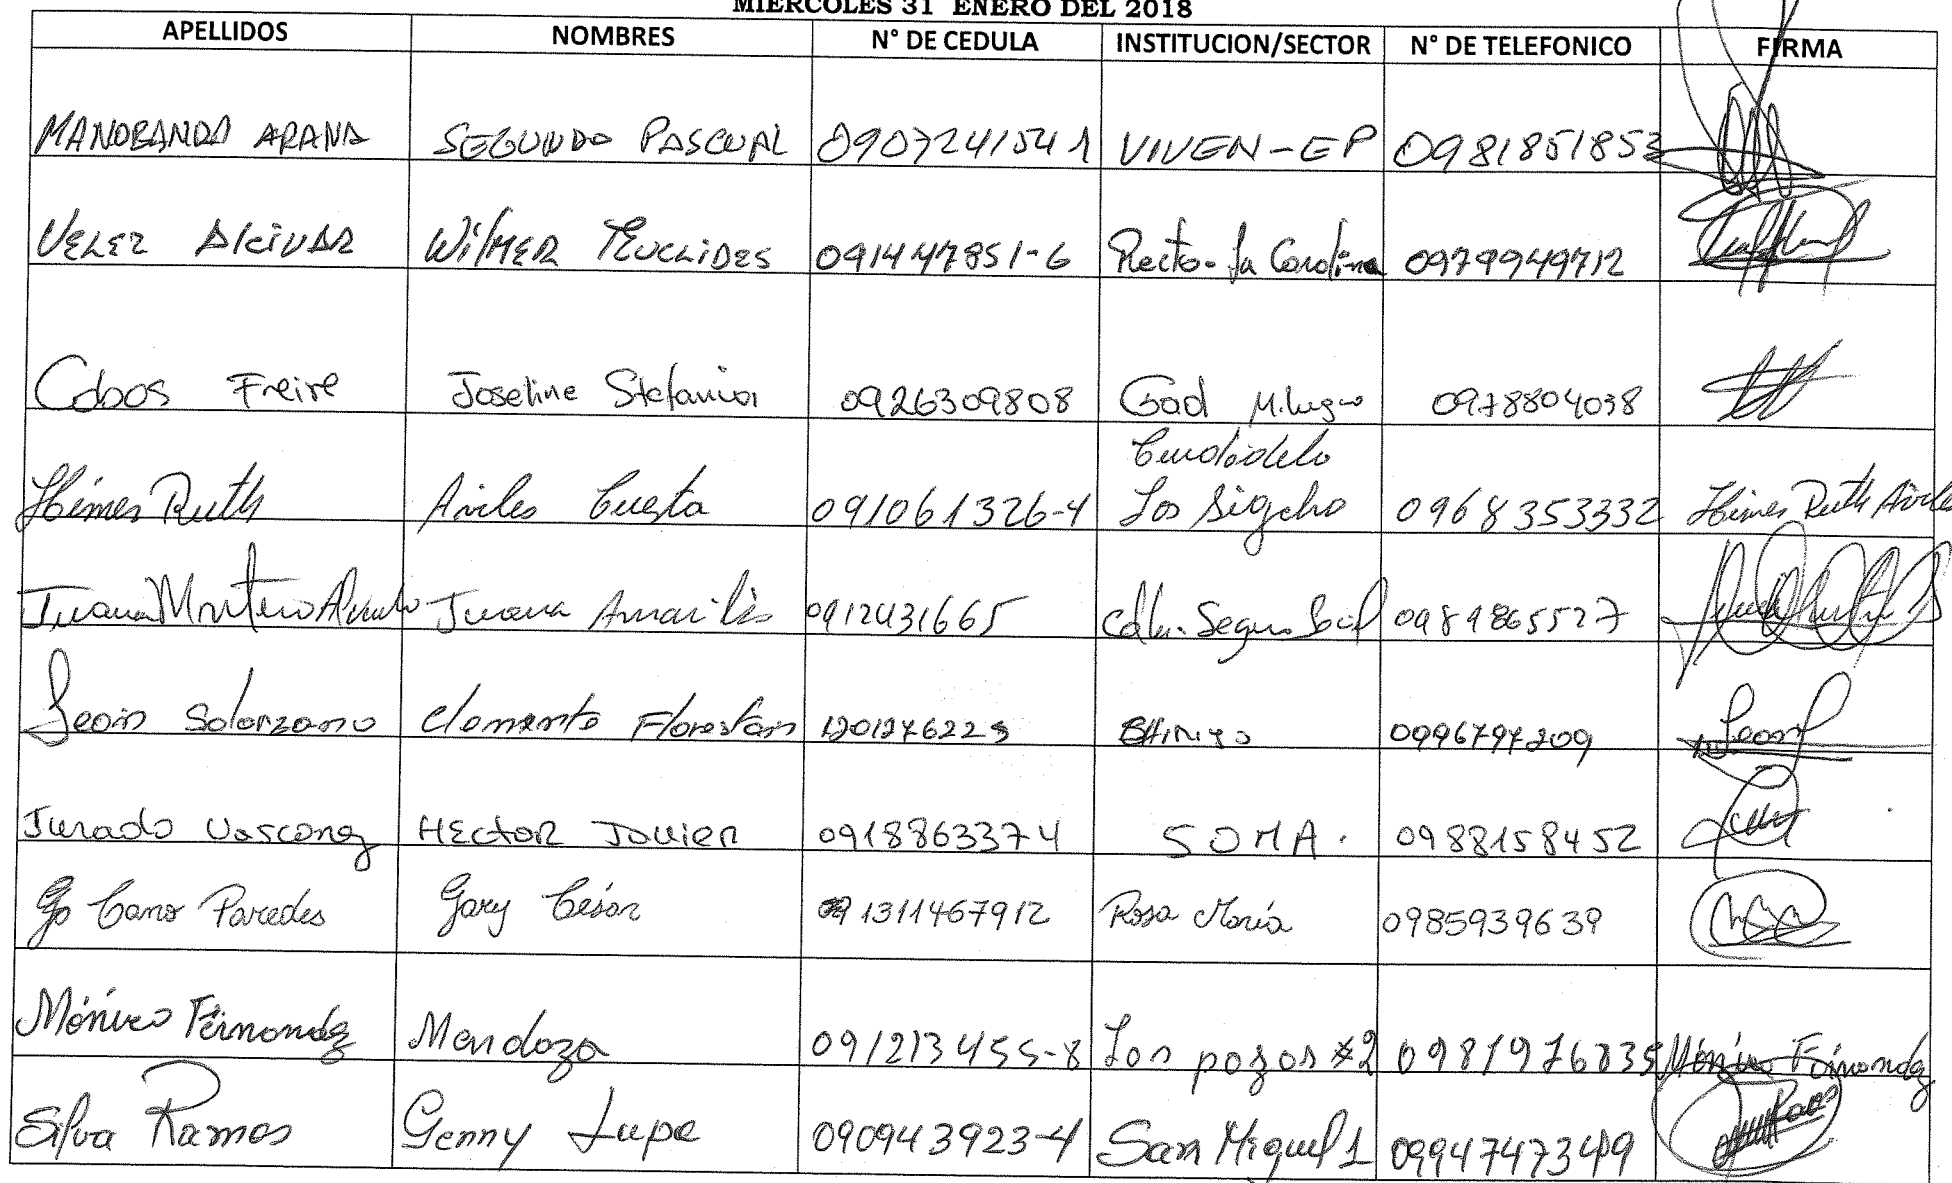 MIERCOLES 31 ENERO DEL 2018
APELLIDOS NOMBRES N° DE CEDULA INSTITUCION/SECTOR N° DE TELEFONICO FIRMA
MANOBANDA ARANA SEGUNDO PASCUAL 0907241541 VIVEN-EP 0981851853
VELEZ ALCIVAR WILMER EUCLIDES 091447851-6 Recto-La Carolina 0979949712
Cobos Freire Joseline Stefania 0926309808 Gad M. 0978804038
Ciudadela
Himes Ruth Aviles Cuesta 091061326-4 Los Sigcho 0968353332 Himes Ruth Aviles
Juana Montero Juana Amarilis 0912431665 Cdla. Seguro Social 0989865527
Leon Solorzano Clemente Florestan 120127622 0996797209 Leon
Jurado Vascones HECTOR JAVIER 0918863374 SOMA. 0988158452
Go Cano Paredes Gary César 1311467912 Rosa María 0985939639
Mónica Fernandez Mendoza 091213455-8 Los pozos #2 0981976835 Mónica Fernandez
Silva Ramos Genny Lupe 090943923-4 San Miguel 1 0994747349